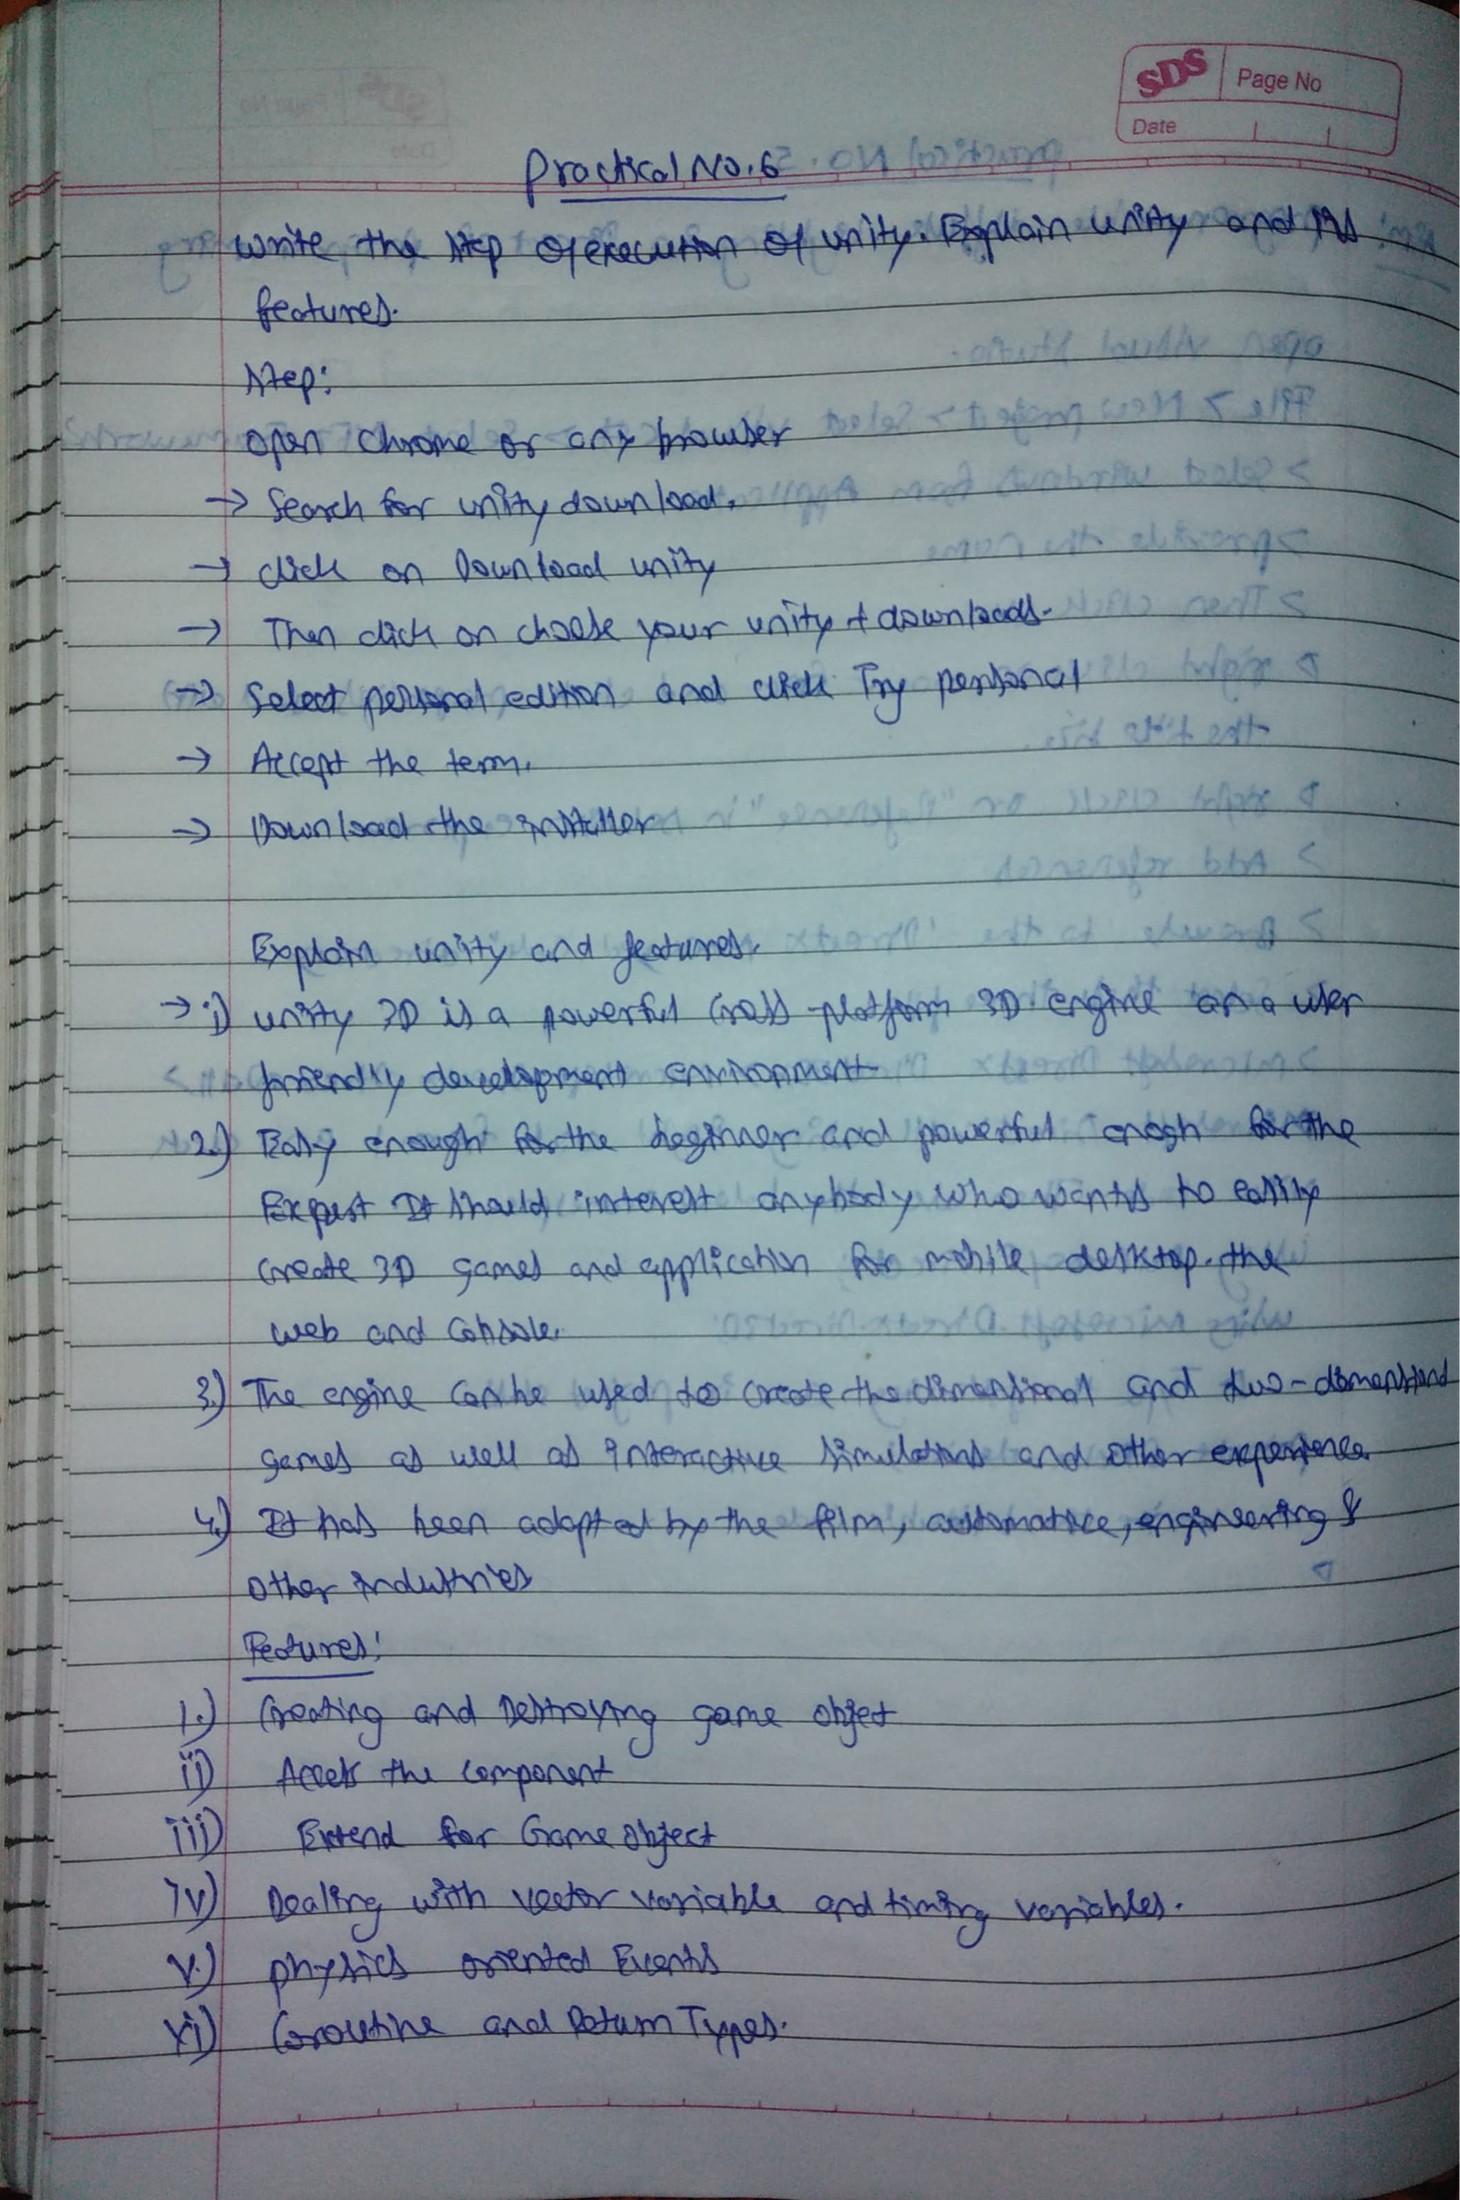 SDS Page No
Date
Practical No. 6
Write the step of execution of unity. Explain unity and its
features.
Step:
open chrome or any browser
→ Search for unity download.
→ click on Download unity
→ Then click on choose your unity + downloads.
→ Select personal edition and click Try personal
→ Accept the term.
→ Download the installer
Explain unity and features.
→ i) unity 3D is a powerful cross-platform 3D engine an a user
friendly development environment
2.) Easy enough for the beginner and powerful enogh for the
Expert It should interest anybody who wants to easily
create 3D games and application for mobile desktop. the
web and console.
3.) The engine can be used to create the dimensional and two-dimensional
games as well as interactive simulations and other experience
4.) It has been adopted by the film, automative, engineering &
other industries
Features:
1.) Creating and Destroying game object
ii) Access the component
iii) Extend for Game object
iv) Dealing with vector variable and timing variables.
v.) physics oriented Events
vi) Coroutine and Return Types.